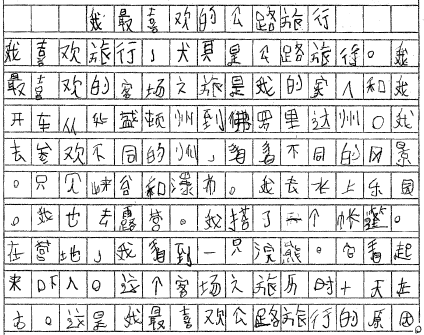 我最喜欢的公路旅行
我喜欢旅行，犬其是公路旅行。我
最喜欢的客场之旅是我的家人和我
开车从华盛顿州到佛罗里达州。我
去参欢不同的州，看看不同的风景
。只见峡谷和瀑布。我去水上乐园
。我也去露营。我搭了一个帐篷。
在营地，我看到一只浣熊。它看起
来吓人。这个客场之旅历时十天左
右。这是我最喜欢公路旅行的原因。